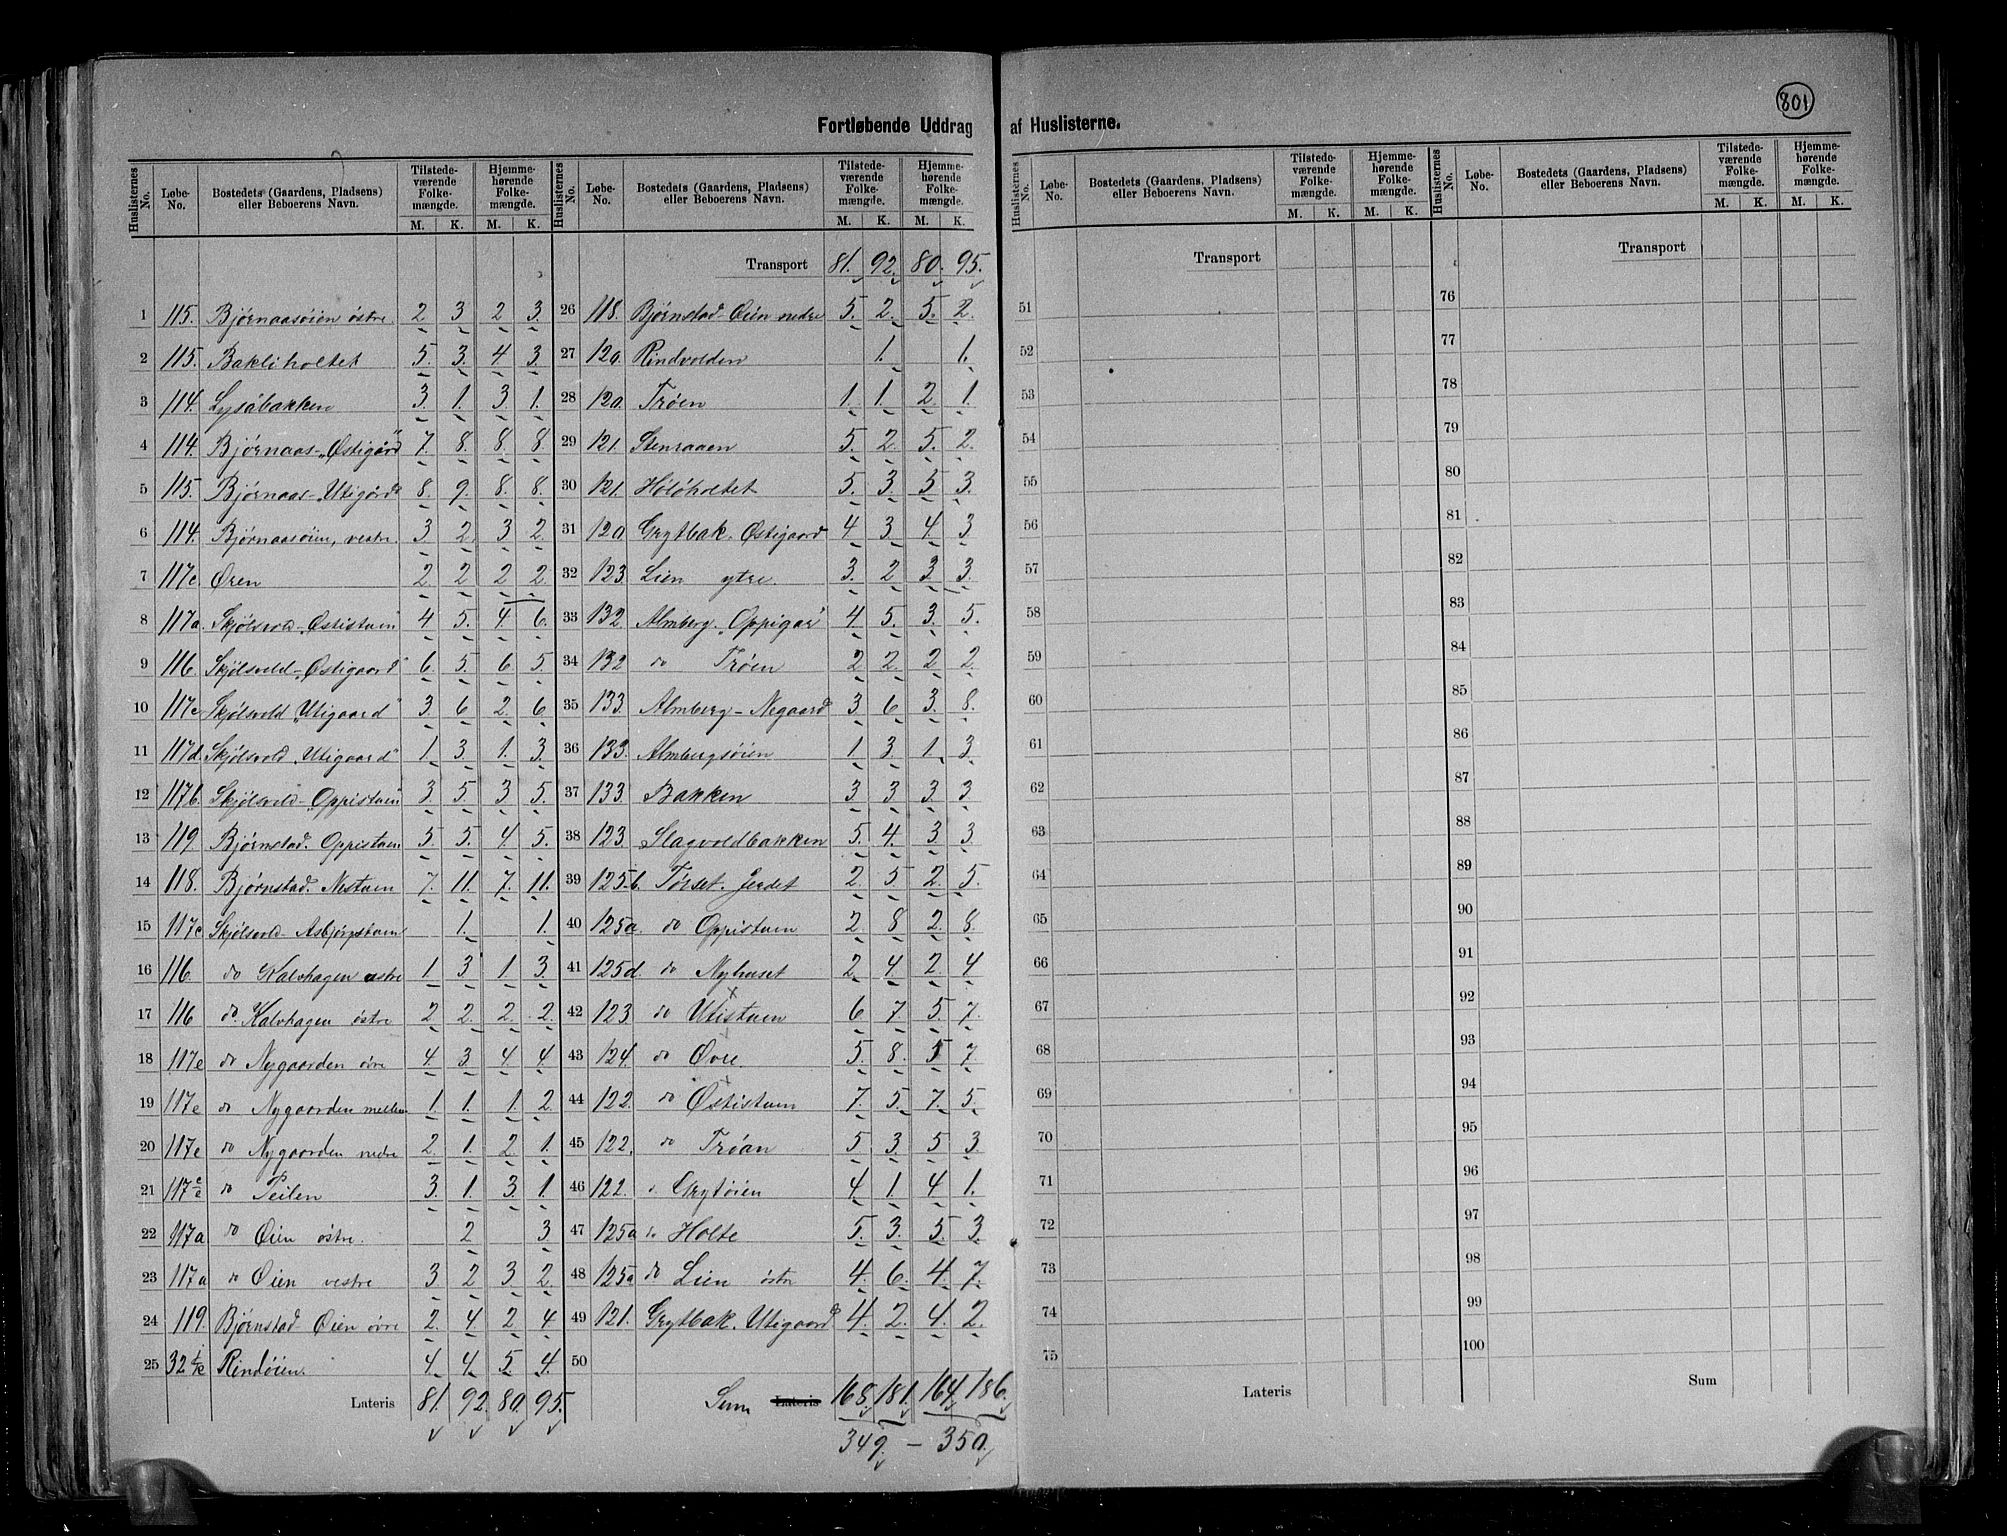 801
Fortløbende Uddrag af Huslisterne.
Huslisternes No. Løbe-No. Bostedets (Gaardens, Pladsens) eller Beboerens Navn. Tilstedeværende Folkemængde. Hjemmehørende Folkemængde.
M. K. M. K.
1 115. Bjørnaasøien østre. 2 3 2 3.
2 115. Bakliholtet 5. 3. 4 3.
3 114. Lysåbakken 3. 1. 3. 1.
4 114. Bjørnaas-„Østigård" 7. 8. 8. 8.
5 115. Bjørnaas-„Utigård" 8. 9. 8. 8.
6 114. Bjørnaasøien, vestre. 3 2. 3 2.
7 117c. Øren 2 2 2 2.
8 117a. Skjølsvold-„Østistuen" 4 5. 4 6.
9 116. Skjølsvold-„Østigaard" 6. 5. 6 5.
10 117c Skjølsvold „Utigaard" 3. 6 2. 6
11 117d. Skjølsvold „Utigaard" 1 3. 1. 3.
12 117b. Skjølsvold-„Oppistuen" 3. 5. 3 5.
13 119. Bjørnstad. Oppistuen 5. 5. 4 5.
14 118. Bjørnstad. Nestuen 7. 11. 7. 11.
15 117c Skjølsvold- Asbjørnstuen 1. 1.
16 116 do Kalvhagen vestre 1. 3 1. 3.
17 116 do. Kalvhagen østre 2 2. 2 2.
18 117e do Nygaarden øvre 4. 3 4 4
19 117e do Nygaarden mellem 1. 1. 1. 2
20 117e do Nygaarden nedre 2. 1. 2 1.
21 117 do Teilen 3. 1. 3. 1.
22 117a do Øien østre. 2 3.
23 117a do Øien vestre 3 2 3 2.
24 119. Bjørnstad-Øien øvre 2. 4 2 4
25 32 1/2 Rindøien. 4 4 5 4.
Lateris 81. 92. 80. 95.
Transport 81. 92. 80. 95.
26 118. Bjørnstad-Øien nedre 5. 2. 5. 2.
27 120. Rindvolden 1. 1.
28 120. Trøen 1. 1. 2 1
29 121. Stenraaen 5. 2. 5. 2.
30 121. Høløholtet 5. 3. 5 3.
31 120 Grytbak. Østigaard 4 3 4. 3
32 123. Lien ytre 3. 2 3 3.
33 132. Almberg. „Oppigar" 4 5. 3. 5.
34 132 do Trøen 2 2 2 2
35 133 Almberg-Negaard 3 6 3. 8.
36 133. Almbergsøien 1 3. 1 3.
37 133. Bakken 3 3 3. 3
38 123. Slagvoldbakken 5. 4. 3 3.
39 125b. Tørset. Jerdet 2. 5 2. 5.
40 125a. do Oppistuen 2. 8 2. 8.
41 125d. do Nyhuset 2 4 2. 4
42 123 do Utistuen 6 7. 5. 7.
43 124. do Øvre. 5. 8. 5 7
44 122. do Østistuen 7. 5. 7. 5.
45 122. do Trøan 5 3. 5 3
46 122. do Grytøien 4 1. 4 1.
47 125a do Holte 5. 3. 5. 3
48 125a do Lien østr 4. 6. 4 7.
49 121. Grytbak. Utigaard 4 2. 4. 2.
50
Sum Lateris 168. 181. 164. 186.
349. – 350.
Huslisternes No. Løbe-No. Bostedets (Gaardens, Pladsens) eller Beboerens Navn. Tilstedeværende Folkemængde. Hjemmehørende Folkemængde.
M. K. M. K.
Transport
51
52
53
54
55
56
57
58
59
60
61
62
63
64
65
66
67
68
69
70
71
72
73
74
75
Lateris
Transport
76
77
78
79
80
81
82
83
84
85
86
87
88
89
90
91
92
93
94
95
96
97
98
99
100
Sum